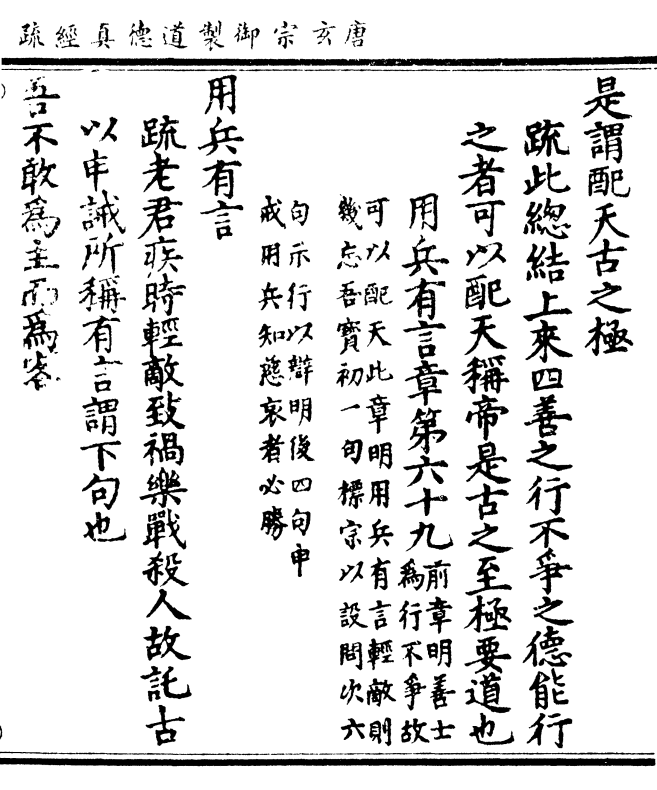 唐玄宗御製道德真經疏
是謂配天古之極
疏此總結上來四善之行不爭之德能行
之者可以配天稱帝是古之至極要道也
用兵有言章第六十九
前章明善士
為行不爭故
可以配天此章明用兵有言輕敵則
幾忘吾寶初一句標宗以設問次六
句示行以辯明後四句申
戒用兵知慈哀者必勝
用兵有言
疏老君疾時輕敵致禍樂戰殺人故託古
以申誡所稱有言謂下句也
吾不敢為主而為客